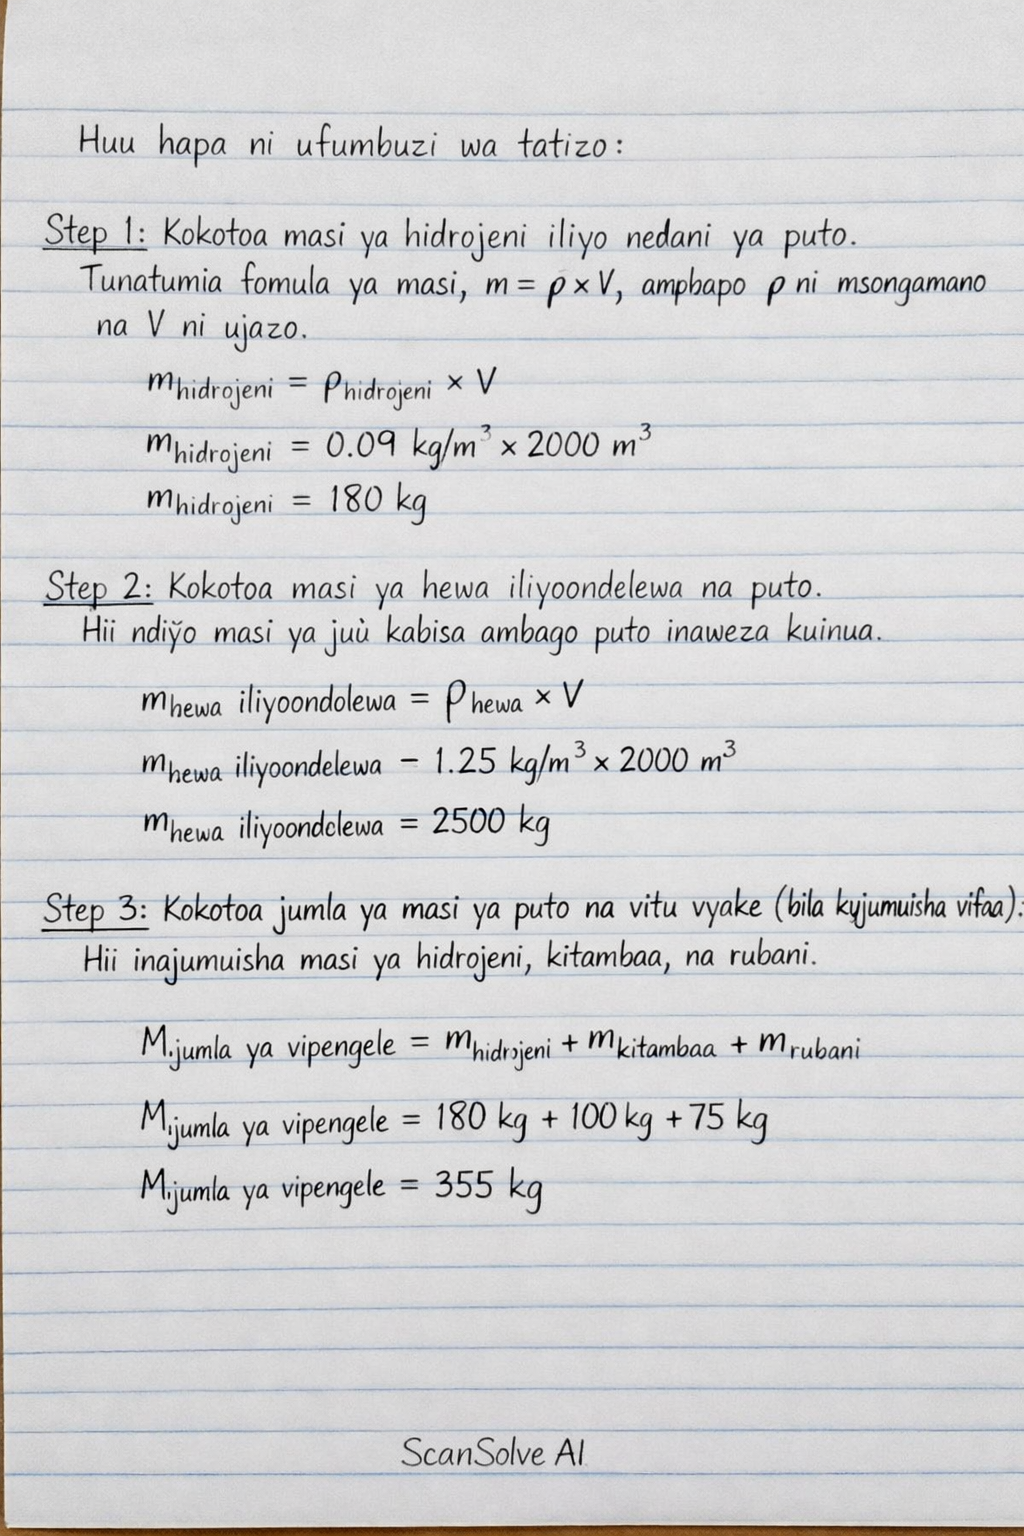 Huu hapa ni ufumbuzi wa tatizo:
Step 1: Kokotoa masi ya hidrojeni iliyo nedani ya puto.
Tunatumia fomula ya masi, m = ρ × V, ampbapo ρ ni msongamano
na V ni ujazo.
m_hidrojeni = ρ_hidrojeni × V
m_hidrojeni = 0.09 kg/m³ × 2000 m³
m_hidrojeni = 180 kg
Step 2: Kokotoa masi ya hewa iliyoondelewa na puto.
Hii ndiÿo masi ya juù kabisa ambago puto inaweza kuinua.
m_hewa iliyoondolewa = ρ_hewa × V
m_hewa iliyoondelewa – 1.25 kg/m³ × 2000 m³
m_hewa iliyoondclewa = 2500 kg
Step 3: Kokotoa jumla ya masi ya puto na vitu vyake (bila kyjumuisha vifaa):
Hii inajumuisha masi ya hidrojeni, kitambaa, na rubani.
M_jumla ya vipengele = m_hidrojeni + m_kitambaa + m_rubani
M_jumla ya vipengele = 180 kg + 100 kg + 75 kg
M_jumla ya vipengele = 355 kg
ScanSolve AI